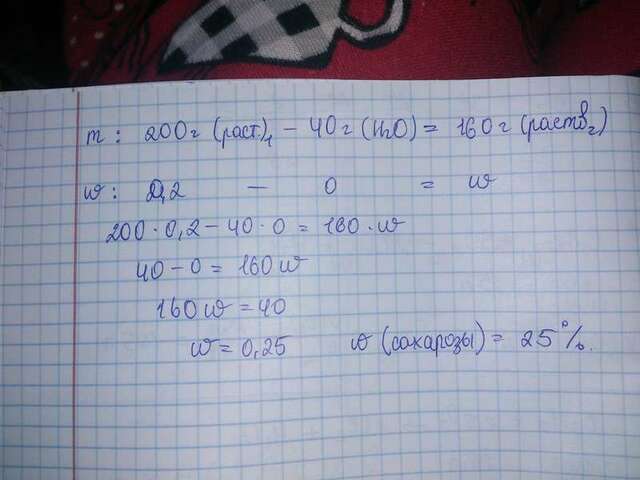 m : 200г (раст)₁ - 40г (H₂O) = 160г (раств₂)
w : 0,2 - 0 = w
200 · 0,2 - 40 · 0 = 160 · w
40 - 0 = 160w
160w = 40
w = 0,25 w (сахарозы) = 25%.